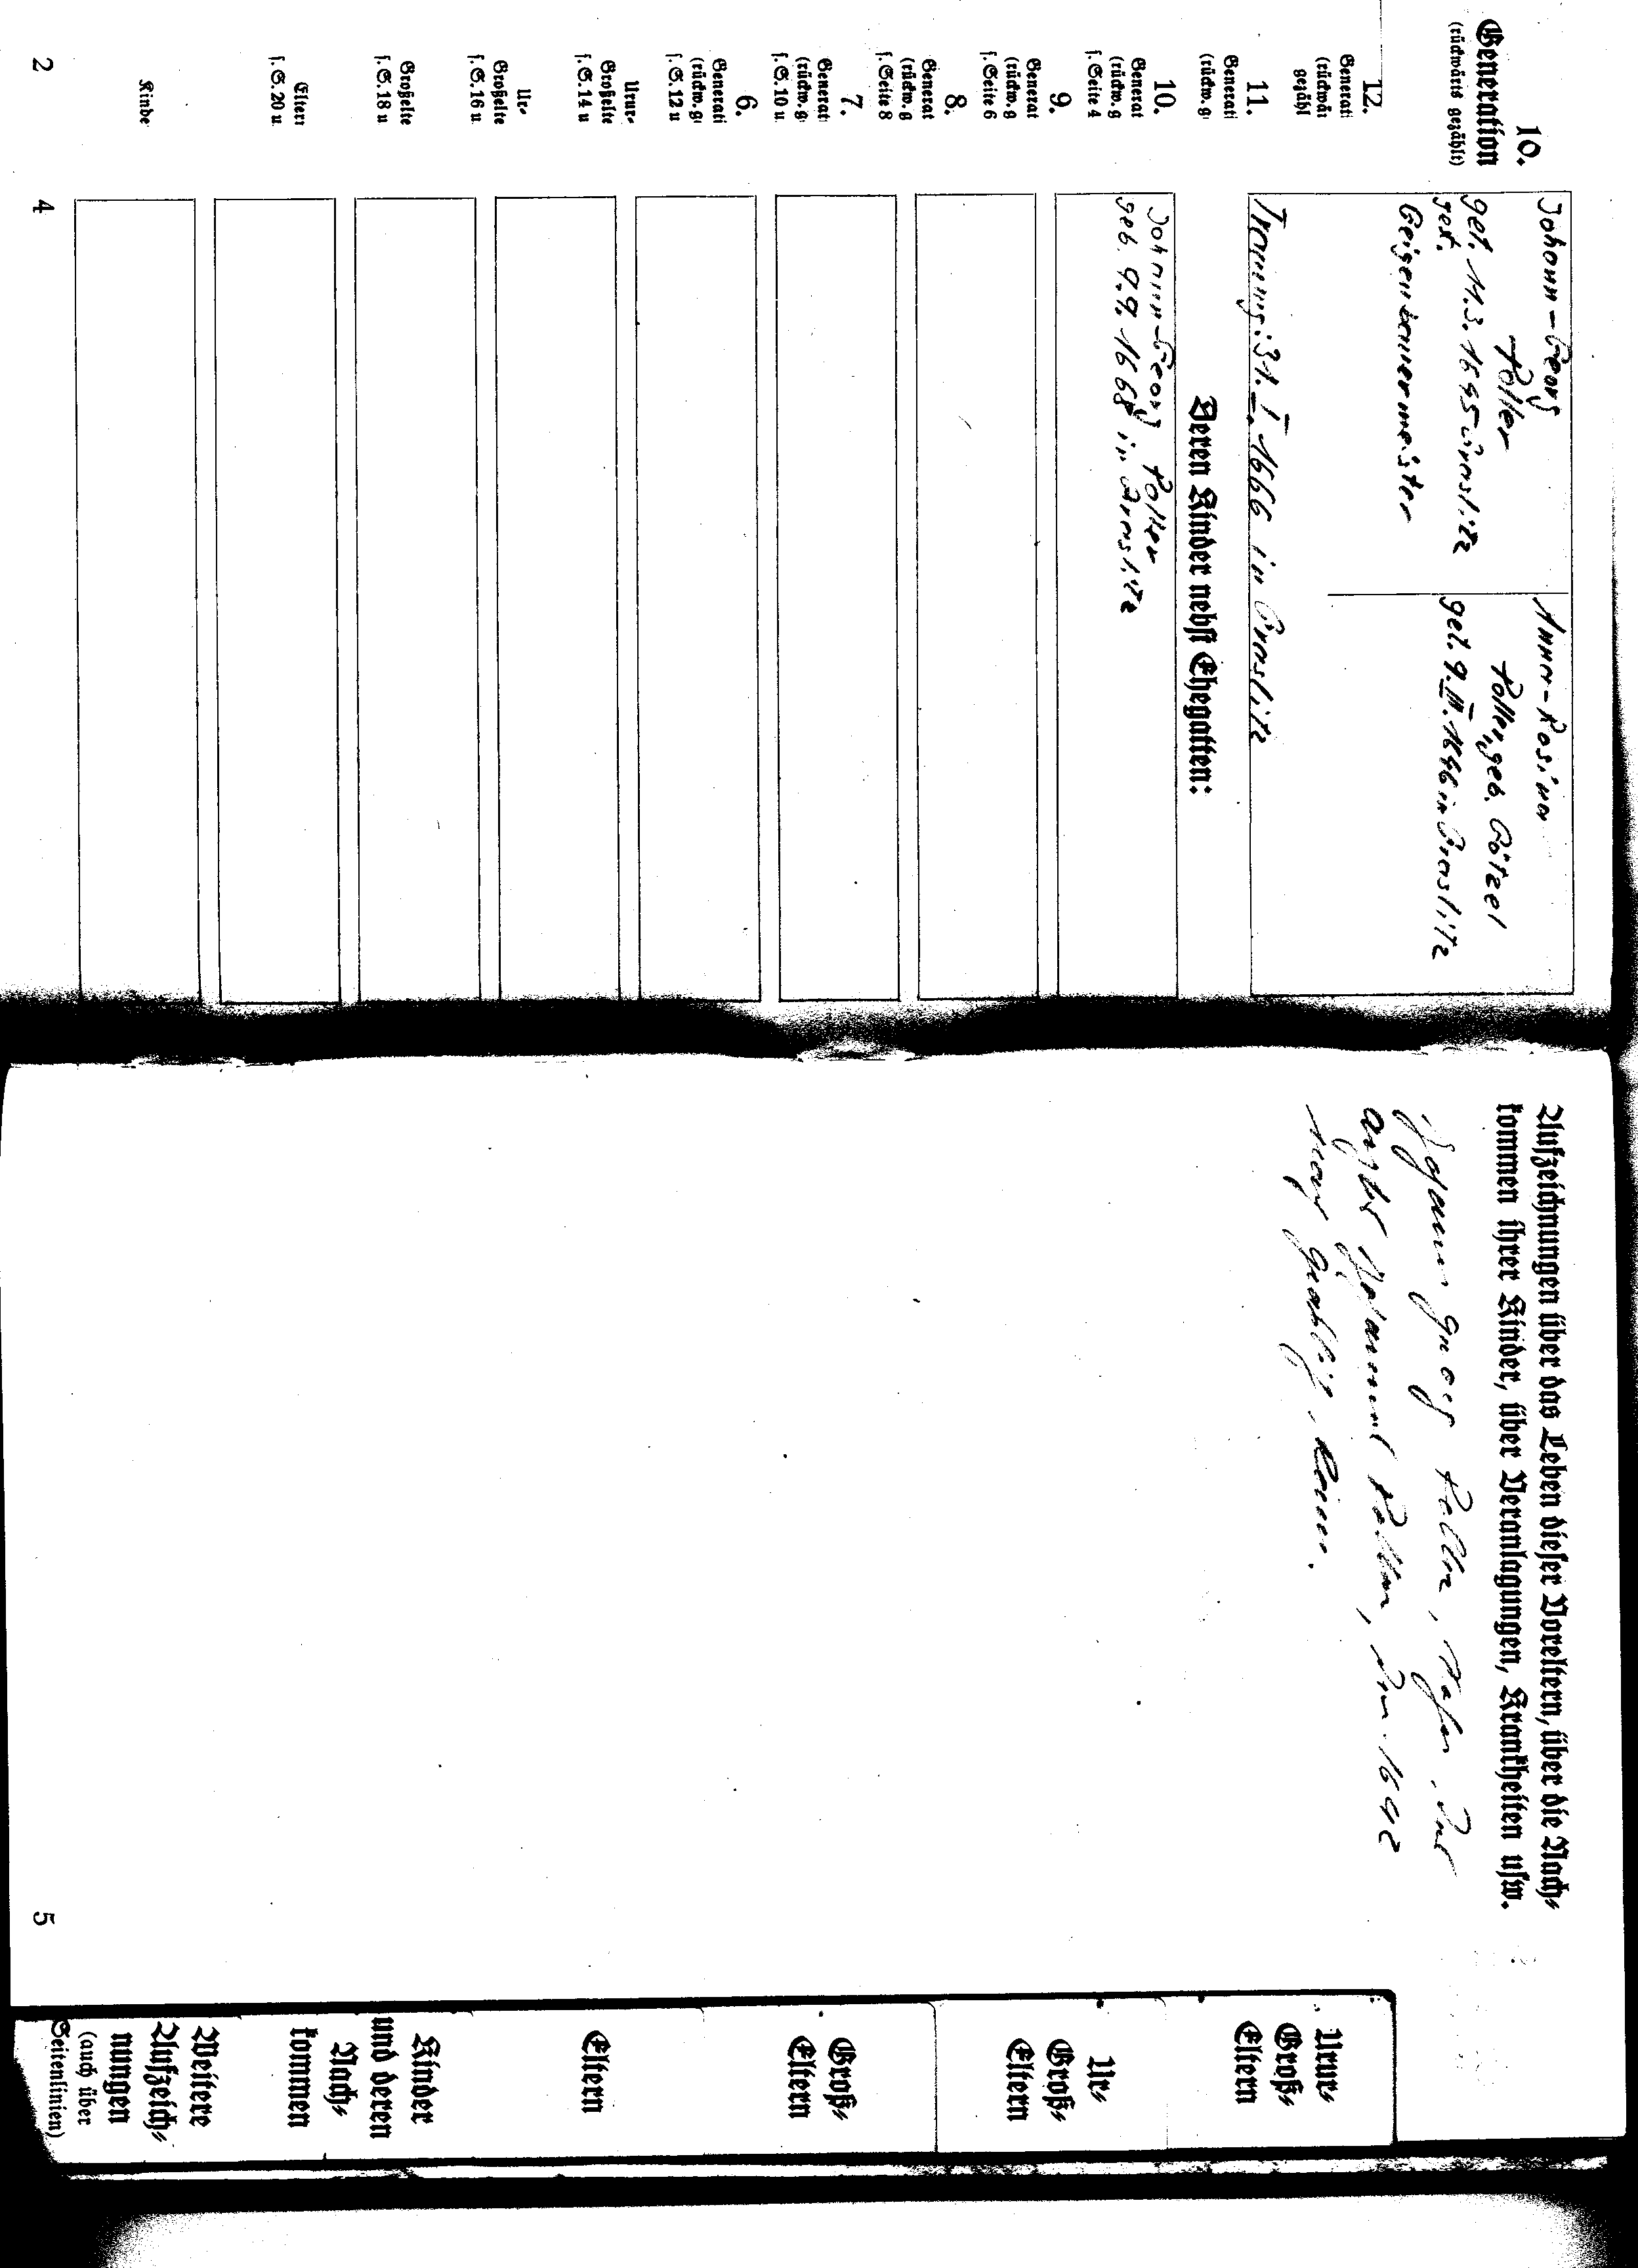 10.
Generation
(rückwärts gezählt)
12.
Generati
(rückwär
gezähl
11.
Generati
(rückw. g
10.
Generat
(rückw. g
s. Seite 4
9.
Generat
(rückw. g
s. Seite 6
8.
Generat
(rückw. g
s. Seite 8
7.
Generati
(rückw. g
s. S. 10 u
6.
Generati
(rückw. g
s. S. 12 u
Urur-
Großelte
s. S. 14 u
Ur-
Großelte
s. S. 16 u
Großelte
s. S. 18 u
Elter
s. S. 20 u
Kinde
2
Johann-Georg
Poller
get. 11.3.1645 Graslitz
gest.
Geigenbauermeister
Anna-Rosina
Poller, geb. Götzel
get. 9. III. 1646 in Graslitz
Trauung: 31. I. 1666 in Graslitz
Deren Kinder nebst Ehegatten:
Johann-Georg Poller
geb. 9.9.1668 in Graslitz
4
Aufzeichnungen über das Leben dieser Voreltern, über die Nach-
kommen ihrer Kinder, über Veranlagungen, Krankheiten usw.
Johann Georg Poller, Sohn des
Johannes Poller, 1642
5
Urur-
Groß-
Eltern
Ur-
Groß-
Eltern
Groß-
Eltern
Eltern
Kinder
und deren
Nach-
kommen
Weitere
Aufzeich-
nungen
(auch über
Seitenlinien)